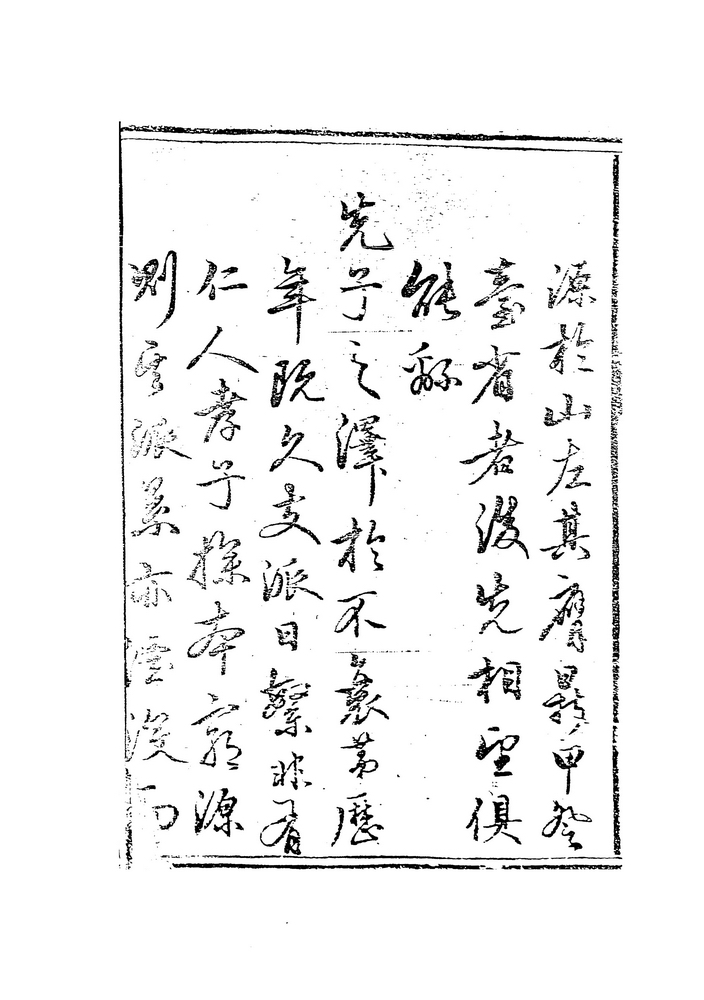 源於山左其膺鼎甲登
臺省者後先相望俱
能緜
先子之澤於不衰第歷
年既久支派日繁非有
仁人孝子探本窮源
則其派系亦湮沒而